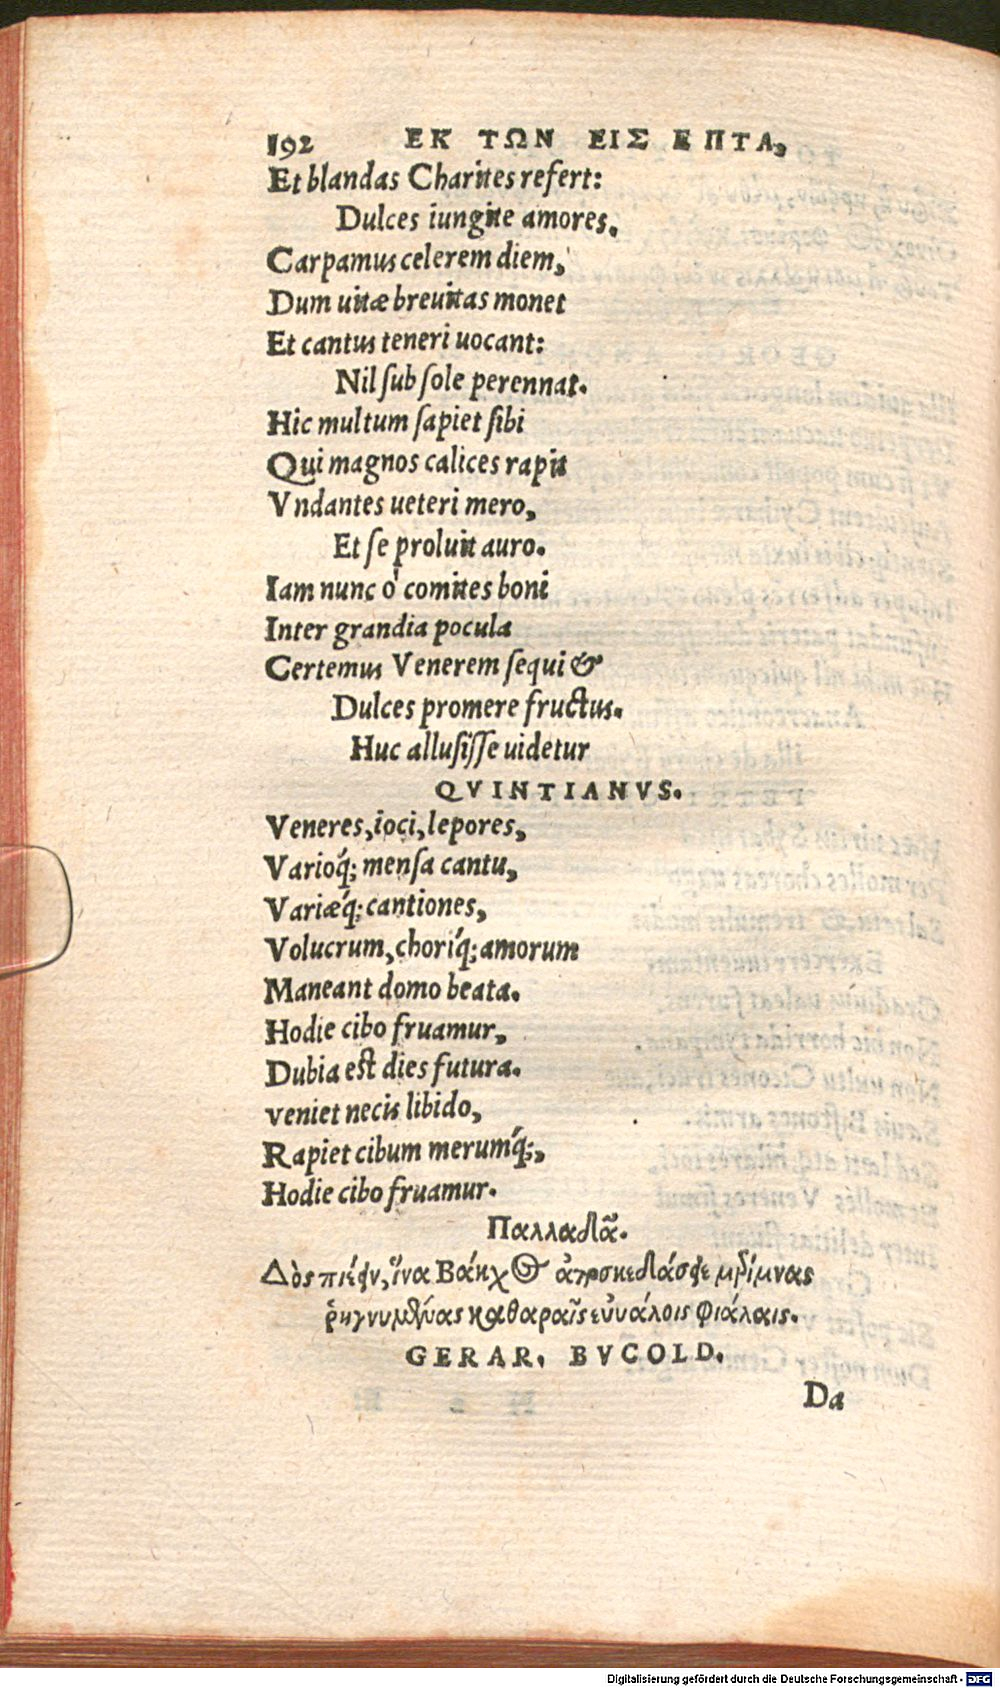 192 ΕΚ ΤΩΝ ΕΙΣ ΕΠΤΑ,
Et blandas Charites refert:
Dulces iungite amores.
Carpamus celerem diem,
Dum uitæ breuitas monet
Et cantus teneri uocant:
Nil sub sole perennat.
Hic multum sapiet sibi
Qui magnos calices rapit
Vndantes ueteri mero,
Et se proluit auro.
Iam nunc ò comites boni
Inter grandia pocula
Certemus Venerem sequi &
Dulces promere fructus.
Huc allusisse uidetur
QVINTIANVS.
Veneres, ioci, lepores,
Varioq́; mensa cantu,
Variæq́; cantiones,
Volucrum, choriq́; amorum
Maneant domo beata.
Hodie cibo fruamur,
Dubia est dies futura.
veniet necis libido,
Rapiet cibum merumq́;,
Hodie cibo fruamur.
Παλλαδᾶ.
Δὸς πιέειν, ἵνα Βάκχος ἀποσκεδάσειε μερίμνας
ῥηγνυμένας καθαραῖς εὐυάλοις φιάλαις.
GERAR. BVCOLD.
Da
Digitalisierung gefördert durch die Deutsche Forschungsgemeinschaft - DFG